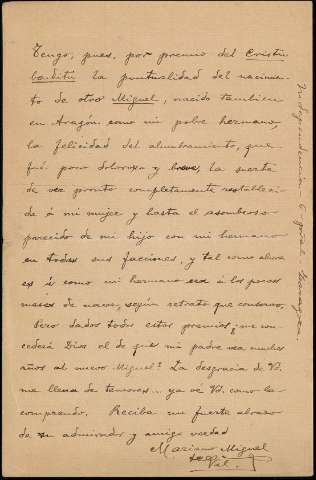 Tengo, pues, por premio del Cristu
bendittu la puntualidad del nacimien-
to de otro Miguel, nacido tambien
en Aragón como mi pobre hermano,
la felicidad del alumbramiento, que
fué poco doloroso y breve, la suerte
de ver pronto completamente restableci-
da á mi mujer y hasta el asombroso
parecido de mi hijo con mi hermano
en todas sus facciones, y tal como ahora
es él como mi hermano era á los pocos
meses de nacer, según retrato que conservo.
Pero dados todos estos premios ¿me con-
cederá Dios el de que mi padre vea muchos
años al nuevo Miguel? La desgracia de Vd.
me llena de temores... ya vé Vd. como la
comprendo. Reciba un fuerte abrazo
de su admirador y amigo verdad
Mariano Miguel
de Val
Independencia 6 pral. Zaragoza